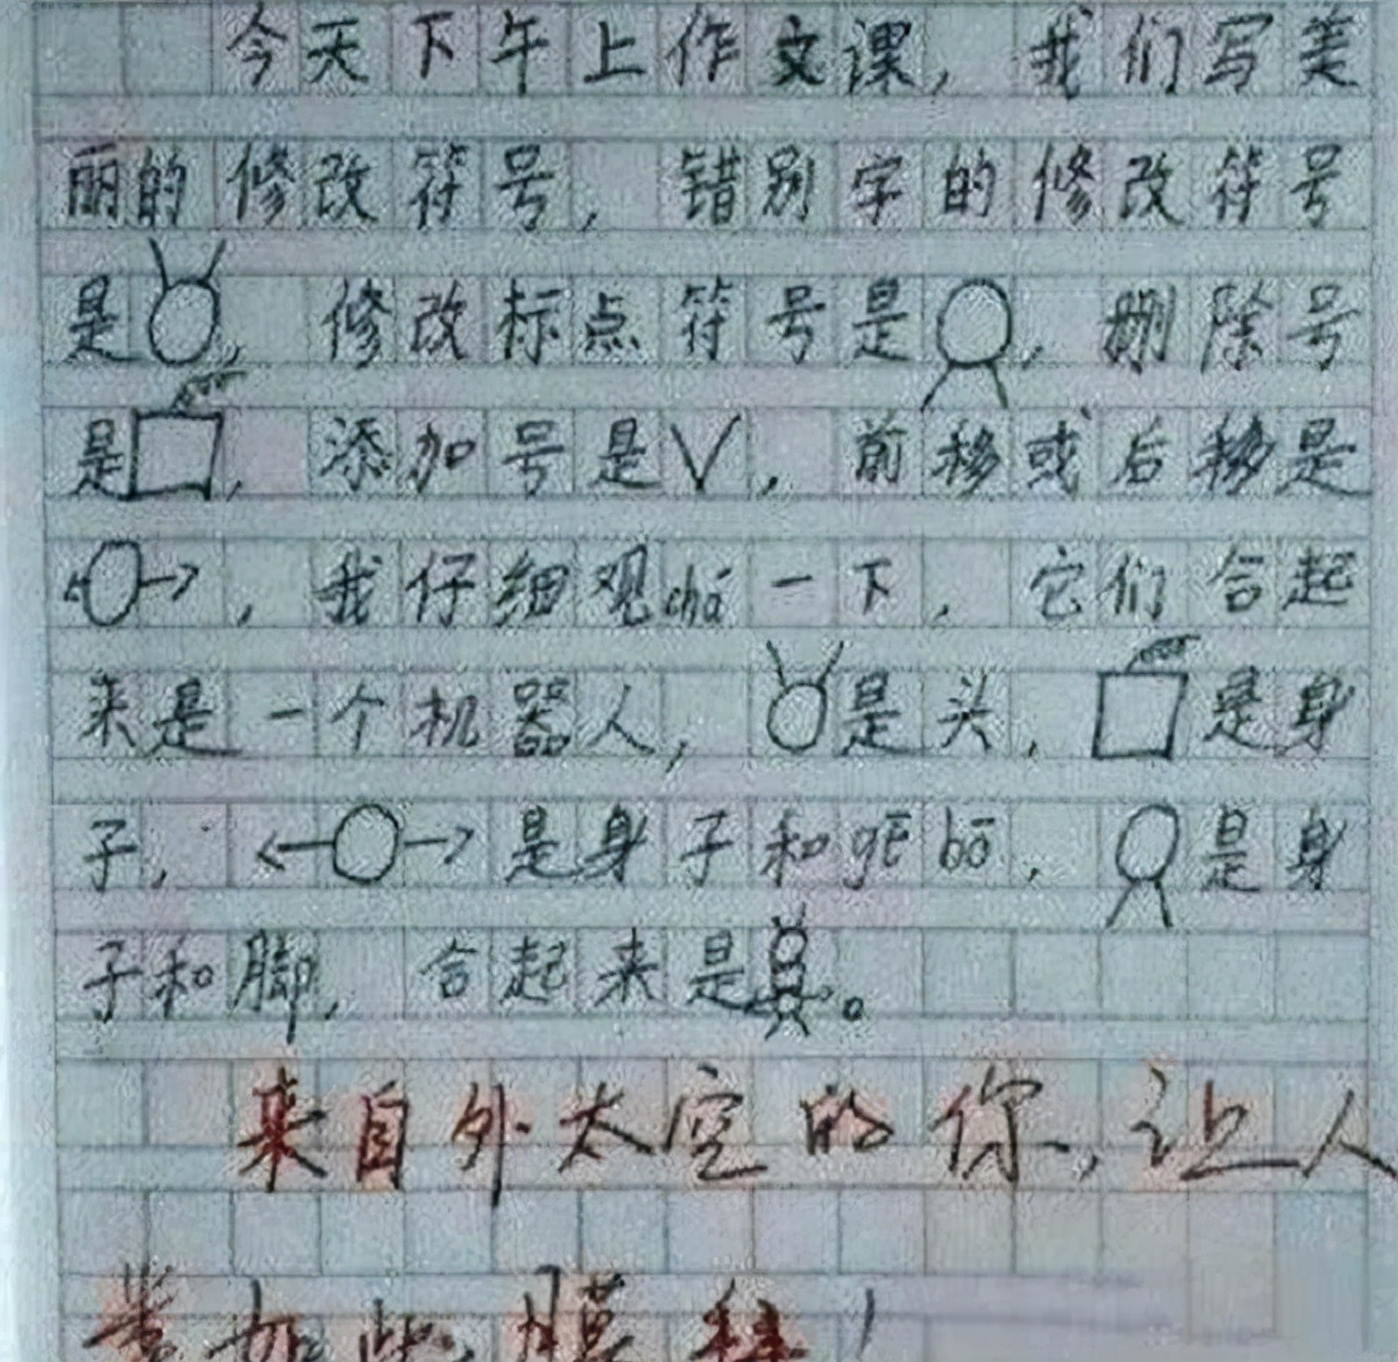 今天下午上作文课，我们写美
丽的修改符号，错别字的修改符号
是，修改标点符号是，删除号
是，添加号是V，前移或后移是
，我仔细观chá一下，它们合起
来是一个机器人，是头，是身
子，是身子和gē bō，是身
子和脚，合起来是。
来自外太空的你，让人
如此膜拜！